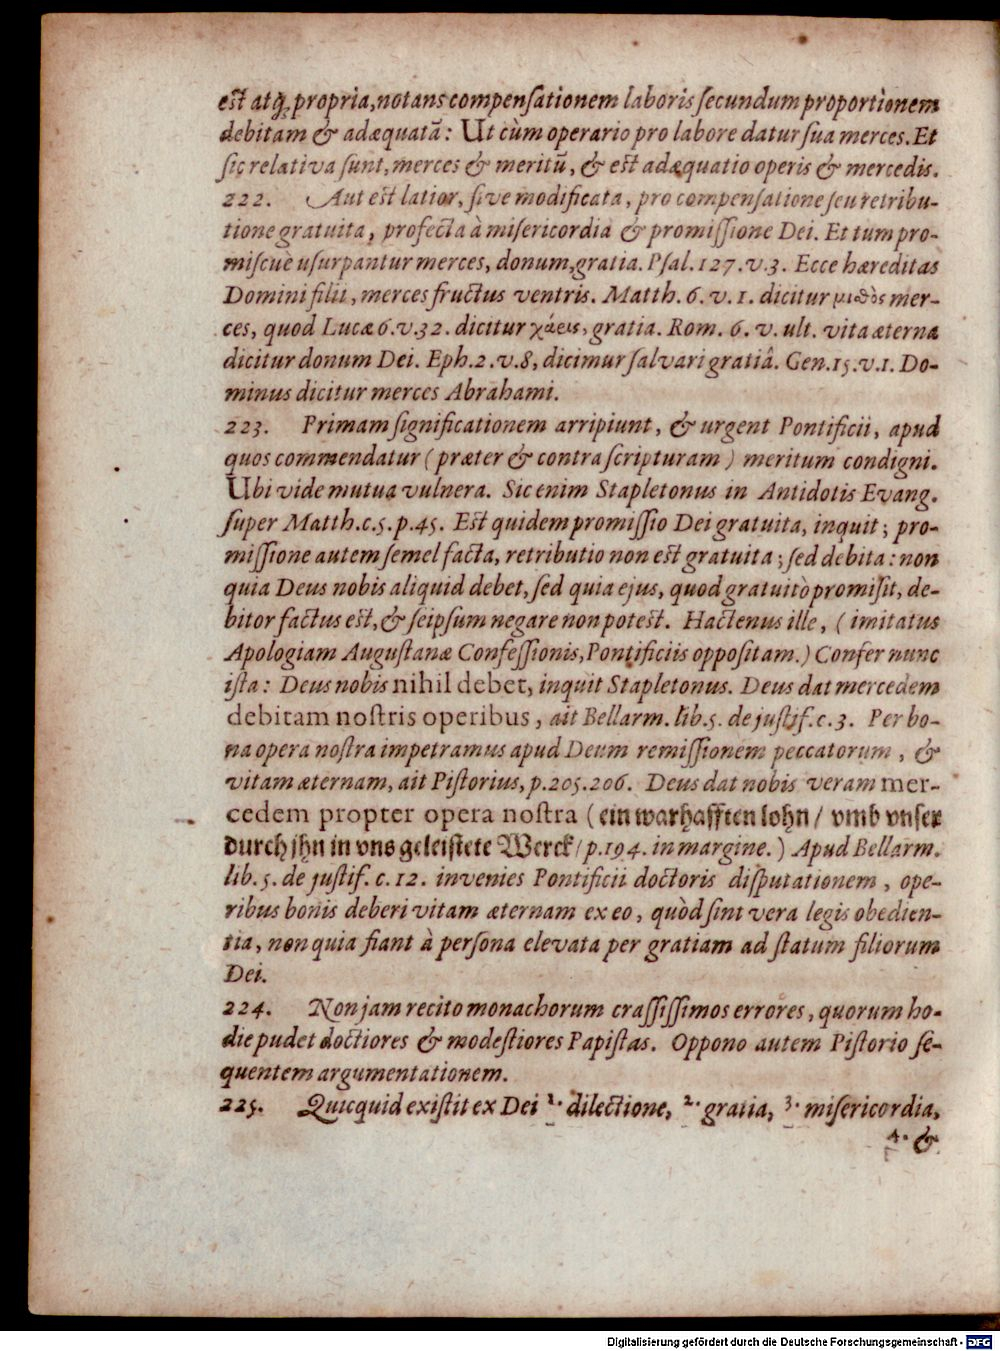 est atq; propria, notans compensationem laboris secundum proportionem
debitam & adæquatã: Ut cùm operario pro labore datur sua merces. Et
sic relativa sunt, merces & meritũ, & est adæquatio operis & mercedis.
222. Aut est latior, sive modificata, pro compensatione seu retribu-
tione gratuita, profecta à misericordia & promissione Dei. Et tum pro-
miscuè usurpantur merces, donum, gratia. Psal. 127. v. 3. Ecce hæreditas
Domini filii, merces fructus ventris. Matth. 6. v. 1. dicitur μισθὸς mer-
ces, quod Lucæ 6. v. 32. dicitur χάρις, gratia. Rom. 6. v. ult. vita æterna
dicitur donum Dei. Eph. 2. v. 8, dicimur salvari gratiâ. Gen. 15. v. 1. Do-
minus dicitur merces Abrahami.
223. Primam significationem arripiunt, & urgent Pontificii, apud
quos commendatur (præter & contra scripturam) meritum condigni.
Ubi vide mutua vulnera. Sic enim Stapletonus in Antidotis Evang.
super Matth. c. 5. p. 45. Est quidem promissio Dei gratuita, inquit; pro-
missione autem semel facta, retributio non est gratuita; sed debita: non
quia Deus nobis aliquid debet, sed quia ejus, quod gratuitò promisit, de-
bitor factus est, & seipsum negare non potest. Hactenus ille, (imitatus
Apologiam Augustanæ Confessionis, Pontificiis oppositam.) Confer nunc
ista: Deus nobis nihil debet, inquit Stapletonus. Deus dat mercedem
debitam nostris operibus, ait Bellarm. lib. 5. de justif. c. 3. Per bo-
na opera nostra impetramus apud Deum remissionem peccatorum, &
vitam æternam, ait Pistorius, p. 205. 206. Deus dat nobis veram mer-
cedem propter opera nostra (ein warhafften lohn / vmb vnser
durch jhn in vns geleistete Werck / p. 194. in margine.) Apud Bellarm.
lib. 5. de justif. c. 12. invenies Pontificii doctoris disputationem, ope-
ribus bonis deberi vitam æternam ex eo, quòd sint vera legis obedien-
tia, non quia fiant à persona elevata per gratiam ad statum filiorum
Dei.
224. Non jam recito monachorum crassissimos errores, quorum ho-
die pudet doctiores & modestiores Papistas. Oppono autem Pistorio se-
quentem argumentationem.
225. Quicquid existit ex Dei 1. dilectione, 2. gratia, 3. misericordia,
4. &
Digitalisierung gefördert durch die Deutsche Forschungsgemeinschaft - DFG